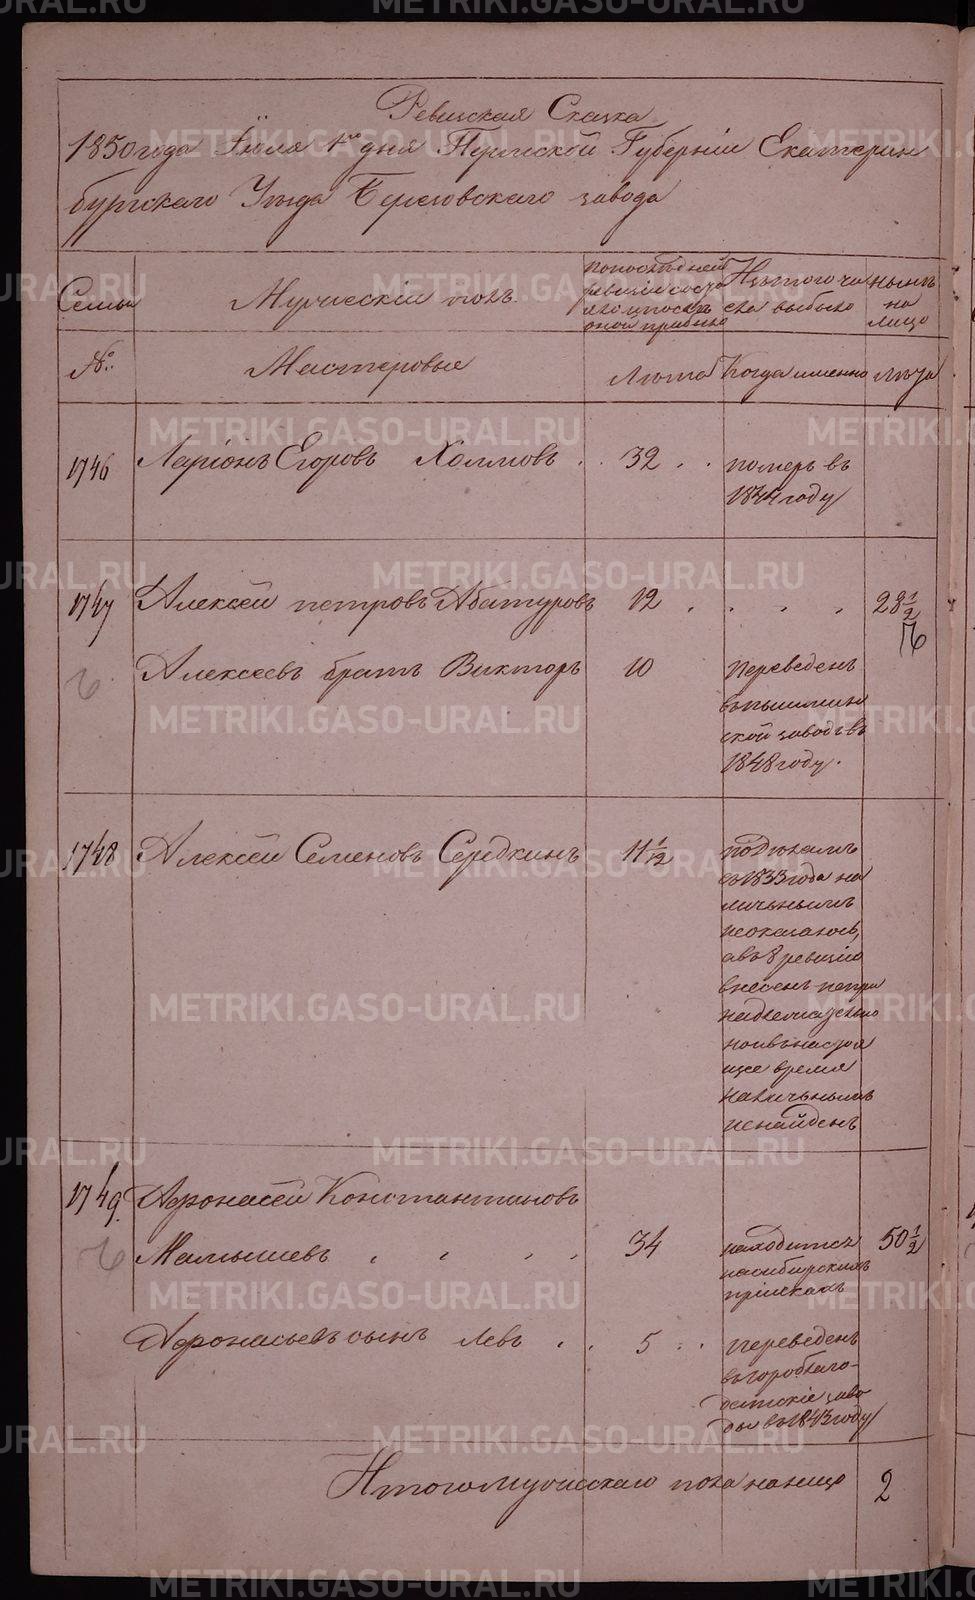 Ревизская Сказка
1850 года Июля 1го дня Пермской Губерніи Екатерин
бургскаго Уѣзда Березовскаго завода
Семьи
Мужескій полъ
по послѣдней
ревизіи состо
яло и послѣ
оной прибыло
Изъ того чи
сла выбыло
нынѣ
на
лицо
№
Мастеровые
Лѣта
Когда именно
лѣта
1746
Ларіонъ Егоровъ Холмовъ . . 32 . .
померъ въ
1844 году
1747
Алексѣй петровъ Абатуровъ 12 . . . . 28 1/2
Алексѣевъ братъ Викторъ 10
переведенъ
въ пышмин
ской заводъ въ
1848 году.
1748
Алексѣй Семеновъ Середкинъ 11 1/2
съ 1833 года на
личьнымъ
неоказалось,
а въ 8 ревизію
внесенъ непри
надлежательно
но и въ настоя
щее время
наличьнымъ
ненайденъ
1749.
Афонасей Константиновъ
Мамышевъ , , , , 34
находится
насибирскихъ
пріискахъ
50 1/2
Афонасьевъ сынъ Левъ . . 5 . .
переведенъ
въ гороблаго-
датскіе заво
ды въ 1843 году
Итого мужескаго пола на лицо 2
METRIKI.GASO-URAL.RU